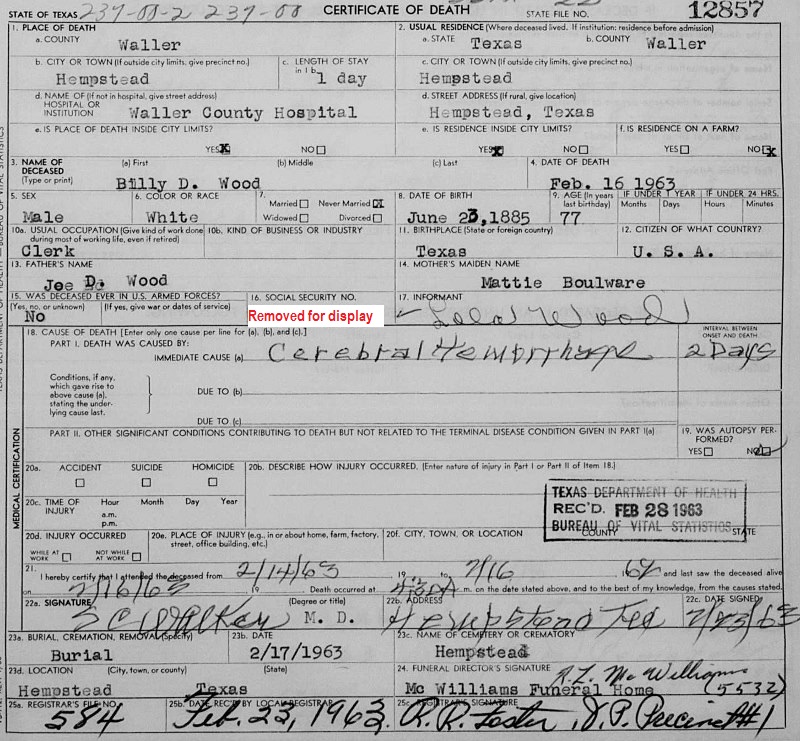 STATE OF TEXAS 237-00-2 237-00 CERTIFICATE OF DEATH STATE FILE NO. 12857
1. PLACE OF DEATH 2. USUAL RESIDENCE (Where deceased lived. If institution: residence before admission)
a. COUNTY Waller a. STATE Texas b. COUNTY Waller
b. CITY OR TOWN (If outside city limits, give precinct no.) Hempstead c. LENGTH OF STAY in 1b 1 day c. CITY OR TOWN (If outside city limits, give precinct no.) Hempstead
d. NAME OF (If not in hospital, give street address) HOSPITAL OR INSTITUTION Waller County Hospital d. STREET ADDRESS (If rural, give location) Hempstead, Texas
e. IS PLACE OF DEATH INSIDE CITY LIMITS? e. IS RESIDENCE INSIDE CITY LIMITS? f. IS RESIDENCE ON A FARM?
YES X NO YES X NO YES NO X
3. NAME OF DECEASED (Type or print) (a) First (b) Middle (c) Last 4. DATE OF DEATH
Billy D. Wood Feb. 16 1963
5. SEX 6. COLOR OR RACE 7. Married Never Married X Widowed Divorced 8. DATE OF BIRTH 9. AGE (In years last birthday) IF UNDER 1 YEAR IF UNDER 24 HRS.
Months Days Hours Minutes
Male White June 23, 1885 77
10a. USUAL OCCUPATION (Give kind of work done during most of working life, even if retired) 10b. KIND OF BUSINESS OR INDUSTRY 11. BIRTHPLACE (State or foreign country) 12. CITIZEN OF WHAT COUNTRY?
Clerk Texas U. S. A.
13. FATHER'S NAME 14. MOTHER'S MAIDEN NAME
Joe D. Wood Mattie Boulware
15. WAS DECEASED EVER IN U.S. ARMED FORCES? 16. SOCIAL SECURITY NO. 17. INFORMANT
(Yes, no, or unknown) (If yes, give war or dates of service)
No Removed for display Wood
18. CAUSE OF DEATH [Enter only one cause per line for (a), (b), and (c).] INTERVAL BETWEEN ONSET AND DEATH
PART I. DEATH WAS CAUSED BY:
IMMEDIATE CAUSE (a) Cerebral Hemorrhage 2 Days
Conditions, if any, which gave rise to above cause (a), stating the underlying cause last.
DUE TO (b)
DUE TO (c)
PART II. OTHER SIGNIFICANT CONDITIONS CONTRIBUTING TO DEATH BUT NOT RELATED TO THE TERMINAL DISEASE CONDITION GIVEN IN PART I(a) 19. WAS AUTOPSY PERFORMED?
YES NO
MEDICAL CERTIFICATION
20a. ACCIDENT SUICIDE HOMICIDE 20b. DESCRIBE HOW INJURY OCCURRED. (Enter nature of injury in Part I or Part II of Item 18.)
20c. TIME OF INJURY Hour Month Day Year
a.m.
p.m.
TEXAS DEPARTMENT OF HEALTH
REC'D. FEB 28 1963
BUREAU OF VITAL STATISTICS
20d. INJURY OCCURRED 20e. PLACE OF INJURY (e.g., in or about home, farm, factory, street, office building, etc.) 20f. CITY, TOWN, OR LOCATION COUNTY STATE
WHILE AT WORK NOT WHILE AT WORK
21. I hereby certify that I attended the deceased from 2/14/63 19 to 2/16 and last saw the deceased alive
on 2/16/63 19 Death occurred at m. on the date stated above, and to the best of my knowledge, from the causes stated.
22a. SIGNATURE (Degree or title) 22b. ADDRESS 22c. DATE SIGNED
S C Walker M. D. Hempstead Tex 2/23/63
23a. BURIAL, CREMATION, REMOVAL (Specify) 23b. DATE 23c. NAME OF CEMETERY OR CREMATORY
Burial 2/17/1963 Hempstead
23d. LOCATION (City, town, or county) (State) 24. FUNERAL DIRECTOR'S SIGNATURE R. L. Mc Williams
Hempstead Texas Mc Williams Funeral Home (5532)
25a. REGISTRAR'S FILE NO. 25b. DATE REC'D BY LOCAL REGISTRAR 25c. REGISTRAR'S SIGNATURE
584 Feb. 23, 1963 R. R. Lester, J. P. Precinct #1